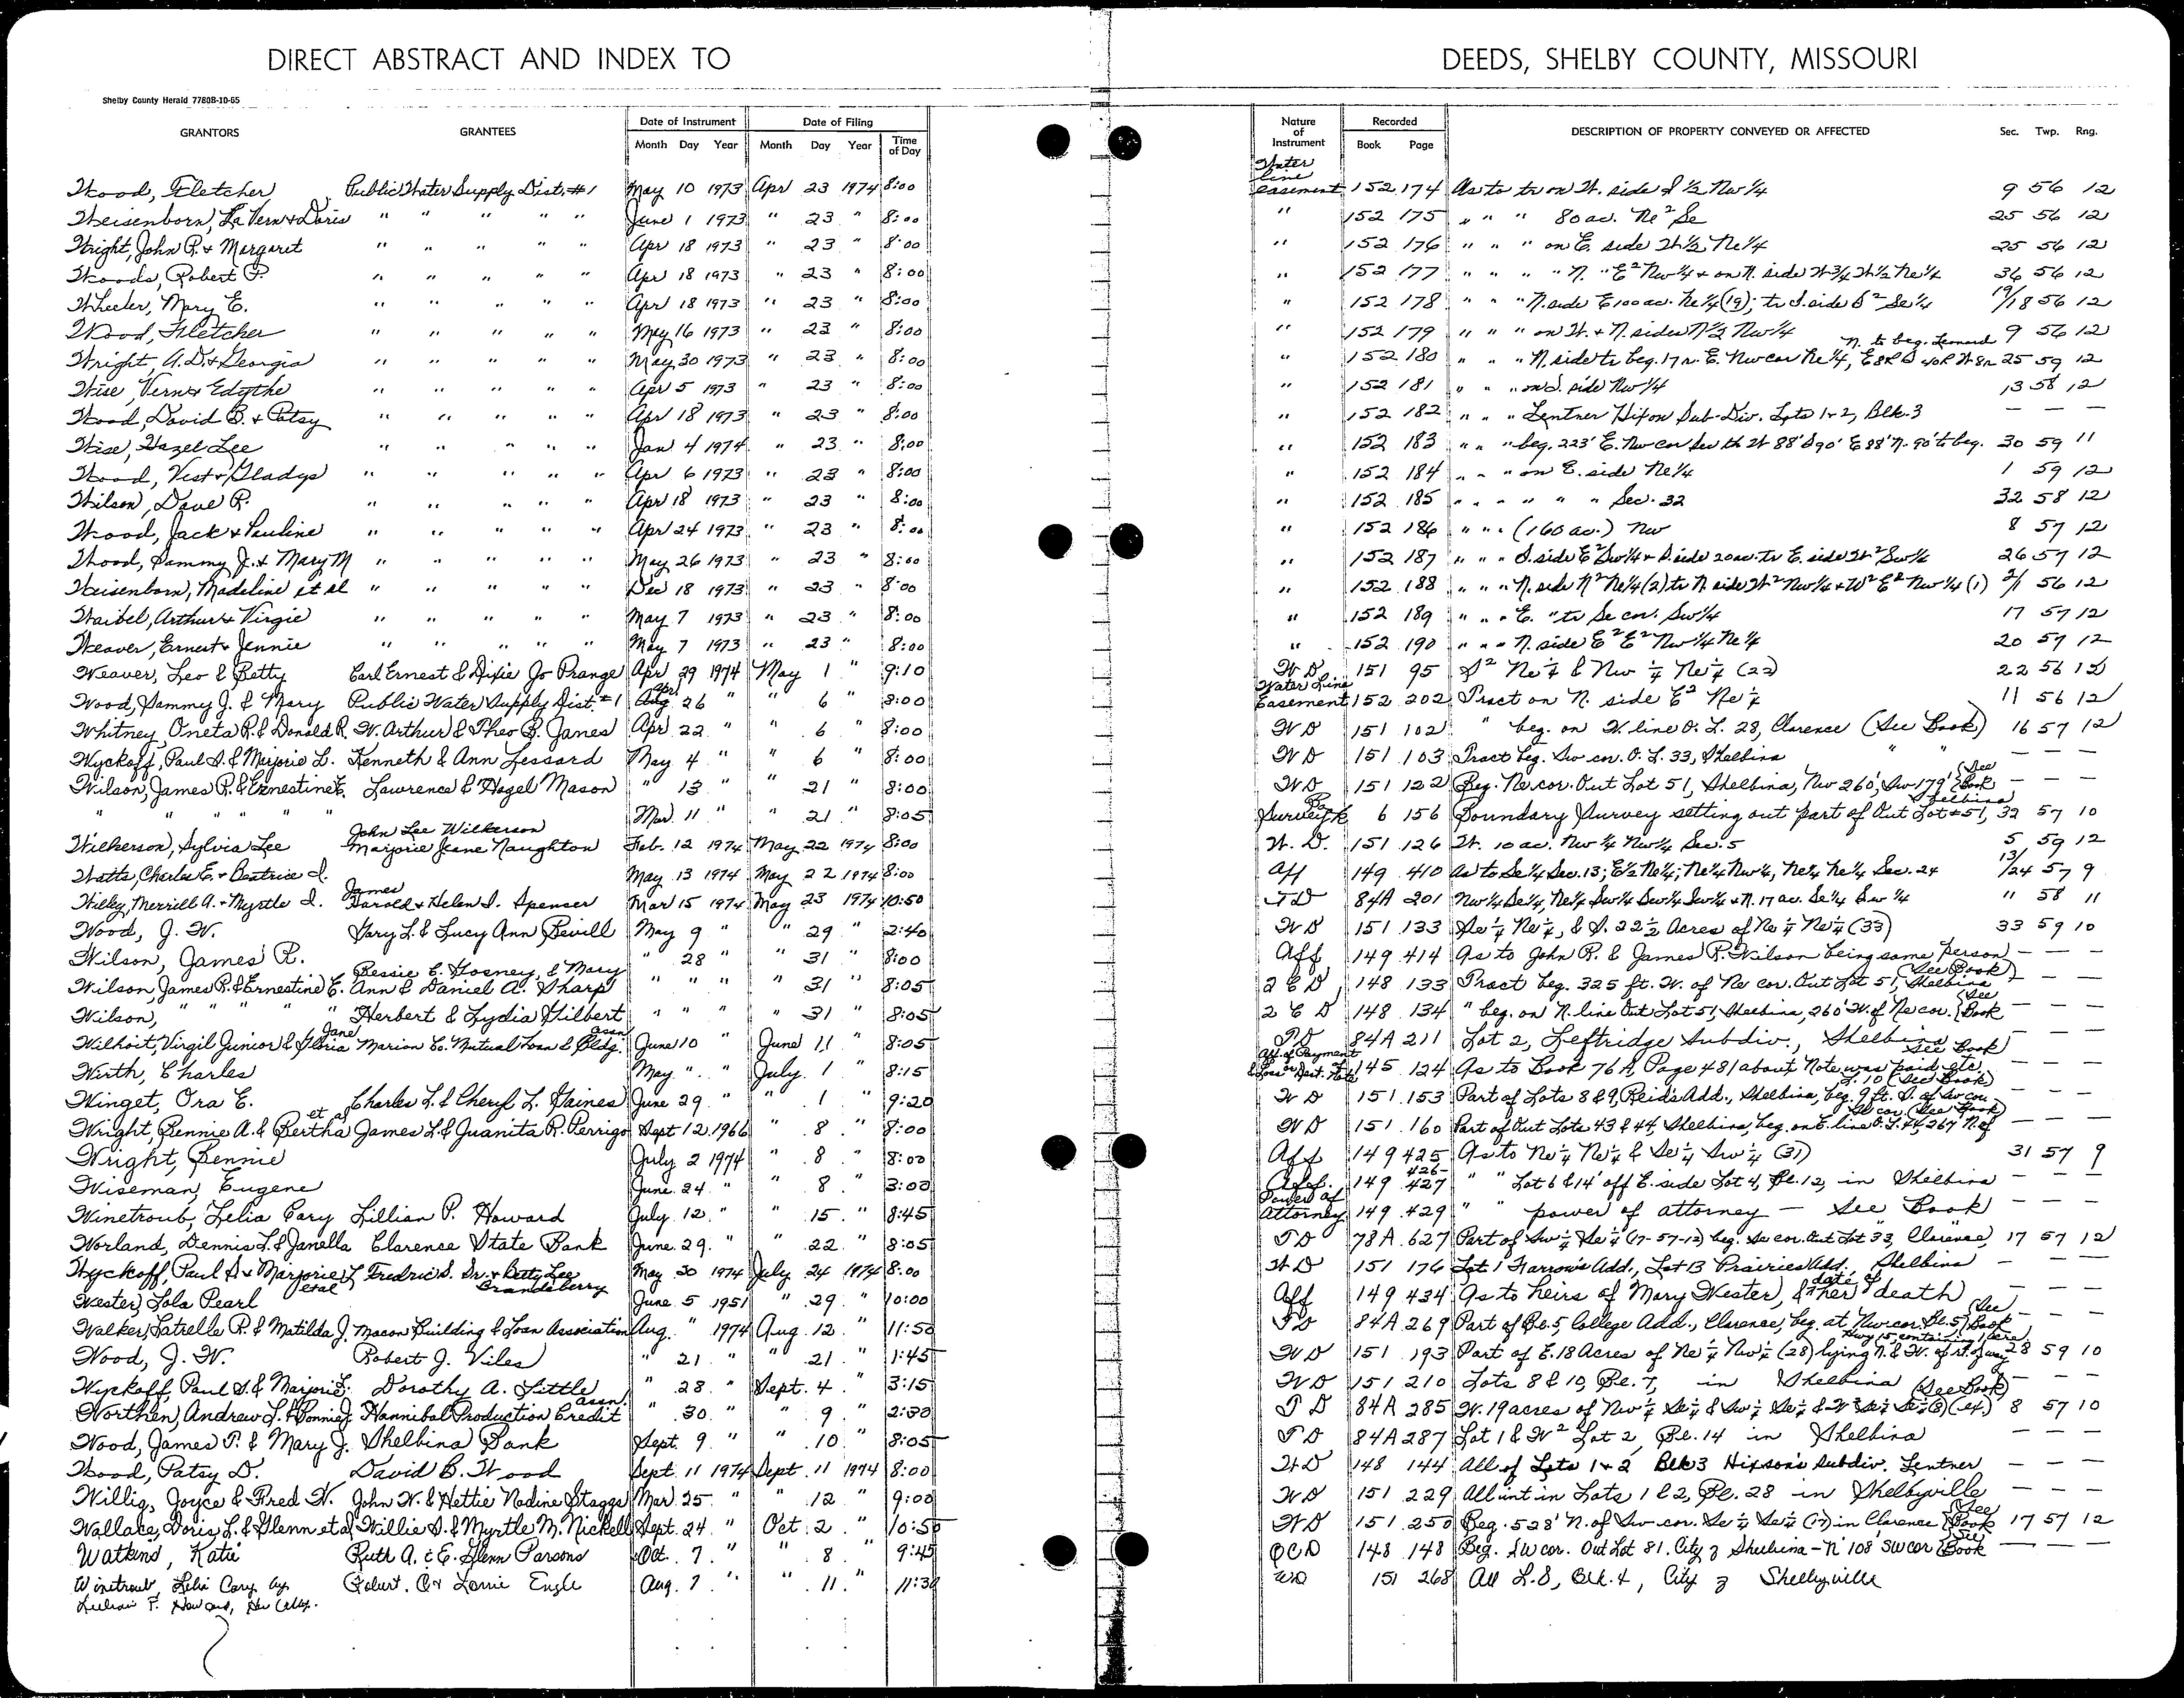 DIRECT ABSTRACT AND INDEX TO DEEDS, SHELBY COUNTY, MISSOURI
Shelby County Herald 7780B-10-65
GRANTORS GRANTEES Date of Instrument Date of Filing Time of Day Nature of Instrument Recorded DESCRIPTION OF PROPERTY CONVEYED OR AFFECTED Sec. Twp. Rng.
Month Day Year Month Day Year Book Page
Wood, Fletcher Public Water Supply Dist. #1 May 10 1973 Apr 23 1974 8:00 Water line easement 152 174 As to tr on W. side S 1/2 Nw 1/4 9 56 12
Weisenborn, La Vern & Doris " " " " " June 1 1973 " 23 " 8:00 " 152 175 " " " 80 ac. Ne² Se 25 56 12
Wright, John R. & Margaret " " " " " Apr 18 1973 " 23 " 8:00 " 152 176 " " " on E. side W 1/2 Ne 1/4 25 56 12
Woods, Robert P. " " " " " Apr 18 1973 " 23 " 8:00 " 152 177 " " " " N. " E² Nw 1/4 & on N. side W 3/4 W 1/2 Ne 1/4 36 56 12
Wheeler, Mary E. " " " " " Apr 18 1973 " " 23 " 8:00 " 152 178 " " " N. side E 100 ac. Ne 1/4 (19); tr S. side S² Se 1/4 19/18 56 12
Wood, Fletcher " " " " " May 16 1973 " 23 " 8:00 " 152 179 " " " on W. & N. sides N 1/2 Nw 1/4 9 56 12
Wright, A.D. & Georgia " " " " " May 30 1973 " 23 " 8:00 " 152 180 " " " N. side tr beg. 17 r. E. Nw cor Ne 1/4, E 8R S 40R W 8R N. to beg. Leonard 25 59 12
Wise, Vern & Edythe " " " " " Apr 5 1973 " 23 " 8:00 " 152 181 " " " on S. side Nw 1/4 13 58 12
Wood, David B. & Patsy " " " " " Apr 18 1973 " 23 " 8:00 " 152 182 " " " Lentner Hixon Sub-Div. Lots 1 & 2, Blk. 3 — — —
Wise, Hazel Lee " " " " " Jan 4 1974 " 23 " 8:00 " 152 183 " " " beg. 223' E. Nw cor Sw th W 88' S 90' E 88' N. 90' to beg. 30 59 11
Wood, Vest & Gladys " " " " " Apr 6 1973 " 23 " 8:00 " 152 184 " " " on E. side Ne 1/4 1 59 12
Wilson, Dave R. " " " " " Apr 18 1973 " 23 " 8:00 " 152 185 " " " " " Sec. 32 32 58 12
Wood, Jack & Pauline " " " " " Apr 24 1973 " 23 " 8:00 " 152 186 " " " (160 ac.) Nw 8 57 12
Wood, Sammy J. & Mary M " " " " " May 26 1973 " 23 " 8:00 " 152 187 " " " S. side E² Sw 1/4 & S. side 20 ac. tr E. side W² Sw 1/4 26 57 12
Weisenborn, Madeline et al " " " " " Dec 18 1973 " 23 " 8:00 " 152 188 " " " N. side N² Ne 1/4 (2) tr N side W² Nw 1/4 & W² E² Nw 1/4 (1) 2/1 56 12
Waibel, Arthur & Virgie " " " " " May 7 1973 " 23 " 8:00 " 152 189 " " " E. " tr Se cor. Sw 1/4 17 57 12
Weaver, Ernest & Jennie " " " " " May 7 1973 " 23 " 8:00 " 152 190 " " " N. side E² E² Nw 1/4 Ne 1/4 20 57 12
Weaver, Leo & Betty Carl Ernest & Dixie Jo Prange Apr 29 1974 May 1 " 9:10 W D 151 95 S² Ne 1/4 & Nw 1/4 Ne 1/4 (22) 22 56 12
Wood, Sammy J. & Mary Public Water Supply Dist. #1 Apr Aug 26 " " 6 " 8:00 Water Line Easement 152 202 Tract on N. side E² Ne 1/4 11 56 12
Whitney, Oneta R. & Donald R. W. Arthur & Theo B. James Apr 22 " " 6 " 8:00 W D 151 102 " beg. on W. line O. L. 28, Clarence (See Book) 16 57 12
Wyckoff, Paul S. & Marjorie L. Kenneth & Ann Lessard May 4 " " 6 " 8:00 W D 151 103 Tract beg. Sw cor. O. L. 33, Shelbina " " — — —
Wilson, James R. & Ernestine E. Lawrence & Hazel Mason " 13 " " 21 " 8:00 W D 151 122 Beg. Ne cor. Out Lot 51, Shelbina, Nw 260', Sw 179' (See Book — — —
" " " " " Mar. 11 " " 21 " 8:05 Survey Bk 6 156 Boundary Survey setting out part of Out Lot #51, Shelbina 32 57 10
Wilkerson, Sylvia Lee John Lee Wilkerson Marjorie Jeane Naughton Feb. 12 1974 May 22 1974 8:00 W. D. 151 126 W. 10 ac. Nw 1/4 Nw 1/4 Sec. 5 5 59 12
Watts, Charles E. & Beatrice I. May 13 1974 May 22 1974 8:00 Aff 149 410 As to Se 1/4 Sec. 13; E 1/2 Ne 1/4; Ne 1/4 Nw 1/4, Ne 1/4 Ne 1/4 Sec. 24 13/24 57 9
Willey, Merrill A. & Myrtle I. James Harold & Helen I. Spenser Mar 15 1974 May 23 1974 10:50 T D 84A 201 Nw 1/4 Se 1/4, Ne 1/4 Sw 1/4 Sw 1/4 Sw 1/4 & N. 17 ac. Se 1/4 Sw 1/4 11 58 11
Wood, J. W. Gary L. & Lucy Ann Bevill May 9 " " 29 " 2:40 W D 151 133 Se 1/4 Ne 1/4, & S. 22 1/2 Acres of Ne 1/4 Ne 1/4 (33) 33 59 10
Wilson, James R. " 28 " " 31 " 8:00 Aff 149 414 As to John R. & James R. Wilson being same person — — —
Wilson, James R. & Ernestine E. Bessie C. Gosney, & Mary Ann & Daniel A. Sharp " " " " 31 " 8:05 2 C D 148 133 Tract beg. 325 ft. W. of Ne cor. Out Lot 51, Shelbina (See Book) — — —
Wilson, " " " " Herbert & Lydia Hilbert " " " " 31 " 8:05 2 C D 148 134 " beg. on N. line Out Lot 51, Shelbina, 260' W. of Ne cor. (See Book — — —
Wilhoit, Virgil Junior & Gloria Jane Marion Co. Mutual Loan & Bldg. Assn June 10 " June 11 " 8:05 T D 84A 211 Lot 2, Leftridge Subdiv., Shelbina — — —
Wirth, Charles May " " July 1 " 8:15 Aff of Payment & Loss or Dest. of Note 145 124 As to Book 76 A, Page 481 about Note was paid etc. See Book — — —
Winget, Ora E. Charles L. & Cheryl L. Gaines June 29 " " 1 " 9:20 W D 151 153 Part of Lots 8 & 9, Reids Add., Shelbina, beg. 9 ft. S. of Sw cor. L. 10 (See Book) — — —
Wright, Bennie A. & Bertha et al James L. & Juanita R. Perrigo Sept 12 1966 " 8 " 8:00 W D 151 160 Part of Out Lots 43 & 44, Shelbina, beg. on E. line O. L. 44, 267 N. of Se cor. (See Book) — — —
Wright, Bennie July 2 1974 " 8 " 8:00 Aff 149 425 As to Ne 1/4 Ne 1/4 & Se 1/4 Sw 1/4 (31) 31 57 9
Wiseman, Eugene June 24 " " 8 " 3:00 Aff. 149 426-427 " " Lot 6 & 14' off E. side Lot 4, Bl. 12, in Shelbina — — —
Winetroub, Lelia Cary Lillian P. Howard July 12 " " 15 " 8:45 Power of Attorney 149 429 " " power of attorney — See Book — — —
Worland, Dennis L. & Janella Clarence State Bank June 29. " " 22 " 8:05 T D 78A 627 Part of Sw 1/4 Se 1/4 (17-57-12) beg. Se cor. Out Lot 33, Clarence, 17 57 12
Wyckoff, Paul S. & Marjorie L. et al Fredric S. Sr. & Betty Lee Grandsberry May 30 1974 July 24 1974 8:00 W D 151 176 Lot 1 Farrows Add., Lot 13 Prairies Add., Shelbina —
Wester, Lola Pearl June 5 1951 " 29 " 10:00 Aff 149 434 As to heirs of Mary Wester, & date of her death — — —
Walker, Latrelle R. & Matilda J. Macon Building & Loan Association Aug. " 1974 Aug. 12 " 11:50 T D 84A 269 Part of Bl. 5, College Add., Clarence, beg. at Nw cor. Bl. 5 (See Book — — —
Wood, J. W. Robert J. Viles " 21 " " 21 " 1:45 W D 151 193 Part of E. 18 Acres of Ne 1/4 Nw 1/4 (28) lying N. & W. of rt. of way Hwy 15, containing 1 acre 28 59 10
Wyckoff, Paul S. & Marjorie L. Dorothy A. Little " 28 " Sept. 4 " 3:15 W D 151 210 Lots 8 & 10, Bl. 7, in Shelbina — — —
Northen, Andrew L. & Bonnie J. Hannibal Production Credit Assn. " 30 " " 9 " 2:30 T D 84A 285 W. 19 acres of Nw 1/4 Se 1/4 & Sw 1/4 Se 1/4 (See Book) 8 57 10
Wood, James P. & Mary J. Shelbina Bank Sept. 9 " " 10 " 8:05 T D 84A 287 Lot 1 & W² Lot 2, Bl. 14 in Shelbina — — —
Wood, Patsy D. David B. Wood Sept 11 1974 Sept. 11 1974 8:00 W D 148 144 All of Lots 1 & 2 Blk 3 Hixson's Subdiv. Lentner — — —
Willig, Joyce & Fred W. John W. & Hettie Nadine Staggs Mar. 25 " " 12 " 9:00 W D 151 229 All int in Lots 1 & 2, Bl. 28 in Shelbyville — — —
Wallace, Doris L. & Glenn et al Willie S. & Myrtle M. Nickell Sept. 24 " Oct. 2 " 10:50 W D 151 250 Beg. 528' N. of Sw cor. Se 1/4 Se 1/4 (17) in Clarence (See Book 17 57 12
Watkins, Katie Ruth A. & E. Glenn Parsons Oct. 7 " " 8 " 9:45 QCD 148 148 Beg. SW cor. Out Lot 81. City of Shelbina – N 108' SW cor (See Book — — —
Winetroub, Lelia Cary by Robert. O & Lorrie Engle Aug. 7 " " 11 " 11:30 WD 151 268 All L. 8, Blk. 4, City of Shelbyville
Lillian P. Howard, Her Atty.